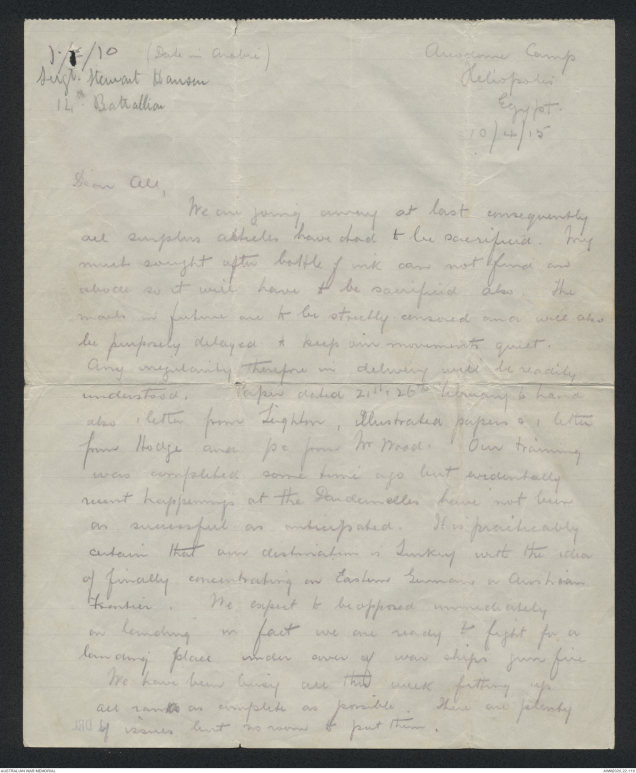 (Date in Arabic)
Sergt. Stewart Hansen
14th Battallion
Aerodrome Camp
Heliopolis
Egypt.
10/4/15
Dear All,
We are going away at last consequently
all surplus articles have had to be sacrificed. My
much sought after bottle of ink can not find an
abode so it will have to be sacrificed also. The
mails in future are to be strictly censored and will also
be purposely delayed to keep our movements quiet.
Any irregularity therefore in delivery will be readily
understood. Paper dated 21st & 26th February to hand
also 1 letter from Leighton, Illustrated papers & 1 letter
from Hodge and pc from Mr Wood. Our training
was completed some time ago but evidentally
recent happenings at the Dardanelles have not been
as successful as anticipated. It is practicably
certain that our destination is Turkey with the idea
of finally concentrating on Eastern Germano or Austrian
Frontier. We expect to be opposed immediately
on landing in fact we are ready to fight for a
landing place under cover of war ships gun fire
We have been busy all this week fitting up
all ranks as complete as possible. There are plenty
of issues but no room to put them.
AUSTRALIAN WAR MEMORIAL